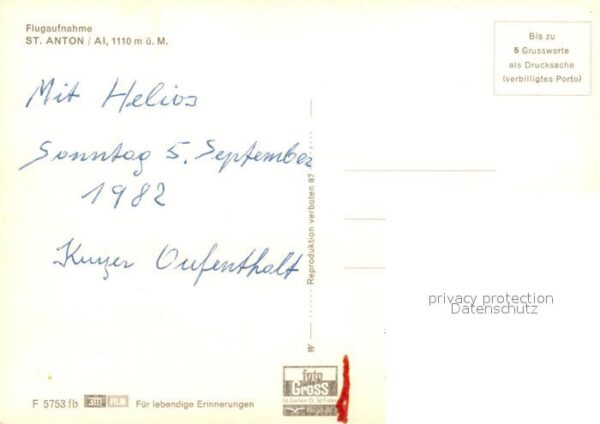 Flugaufnahme
ST. ANTON / AI, 1110 m ü. M.
Bis zu
5 Grussworte
als Drucksache
(verbilligtes Porto)
Mit Helios
Sonntag 5. September
1982
Kurzer Oufenthalt
Reproduktion verboten 87
privacy protection
Datenschutz
foto
GROSS
St. Gallen
F 5753 fb 3M FILM Für lebendige Erinnerungen